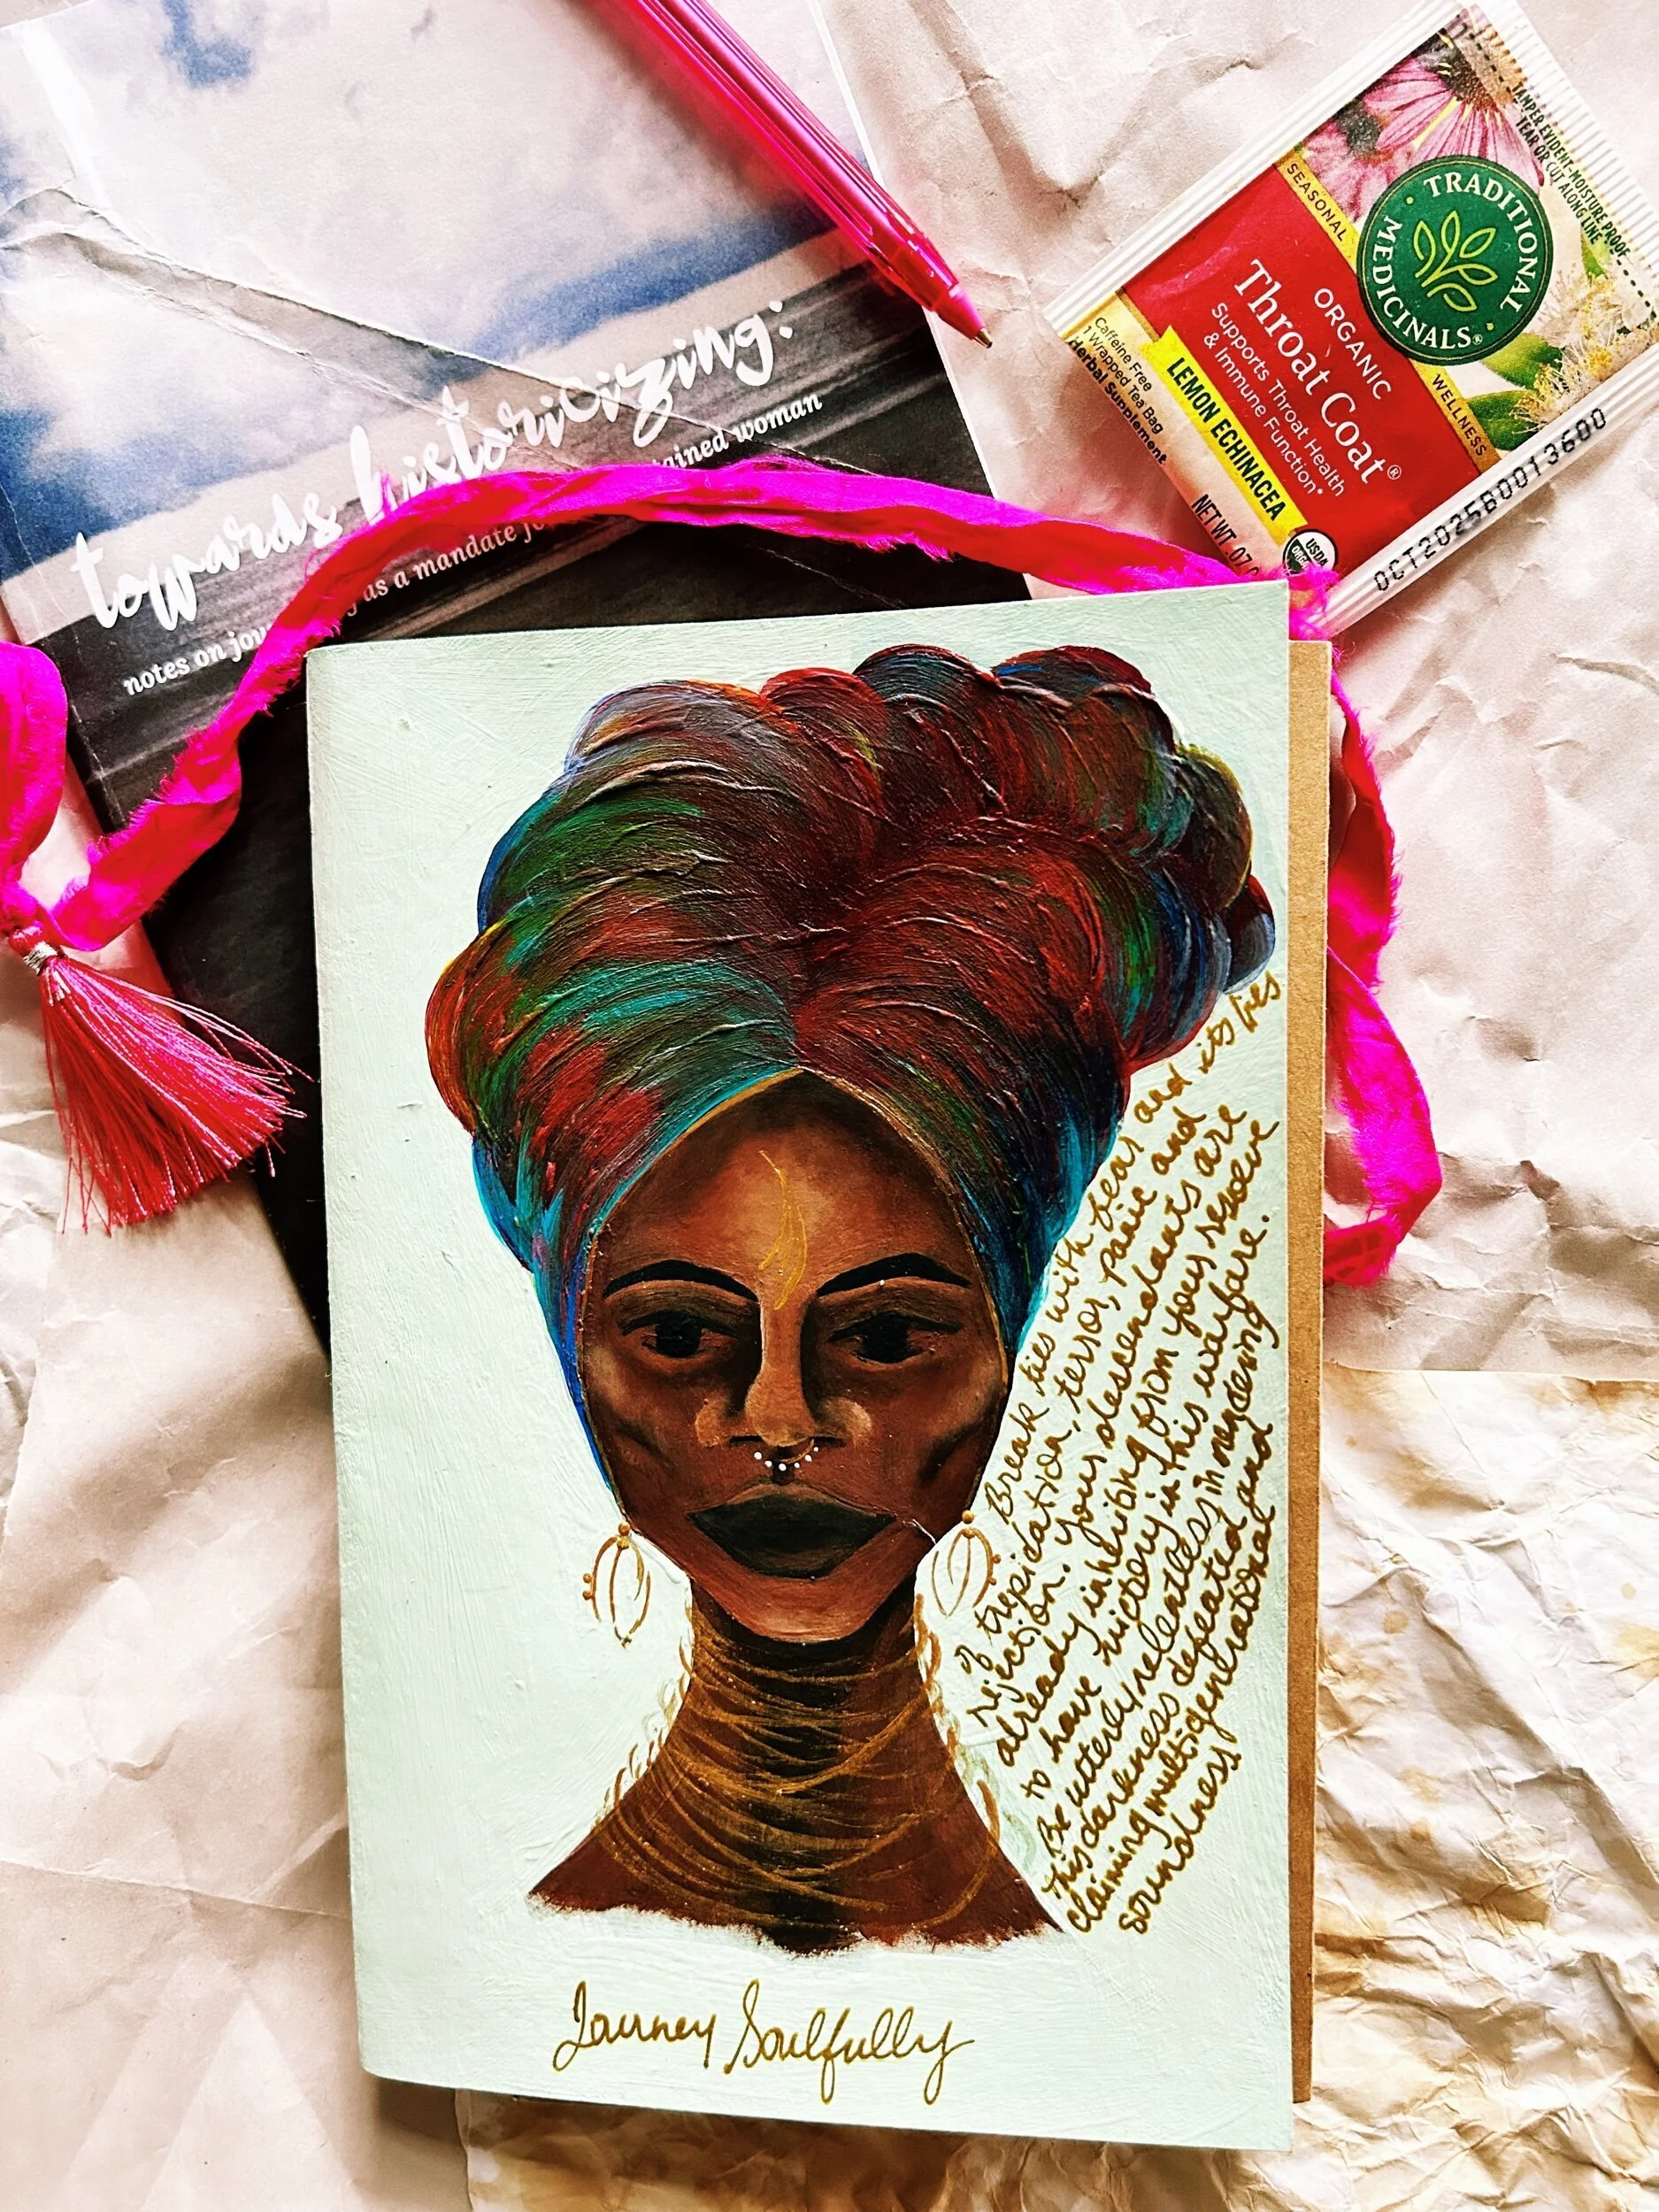 towards historicizing:
notes on jou as a mandate fo tained woman
TRADITIONAL
MEDICINALS®
SEASONAL
WELLNESS
TAMPER EVIDENT-MOISTURE PROOF
TEAR OR CUT ALONG LINE
ORGANIC
Throat Coat®
Supports Throat Health
& Immune Function*
LEMON ECHINACEA
Caffeine Free
1 Wrapped Tea Bag
Herbal Supplement
NET WT .07 O
USDA
ORGANIC
OCT2025B0013600
Break ties with fear and its lies
of trepidation, terror, panic and
rejection. Your descendants are
already inheriting from your resolve
to have victory in this warfare.
Be utterly relentless in rendering
this darkness defeated and
claiming multigenerational
soundness
Journey Soulfully